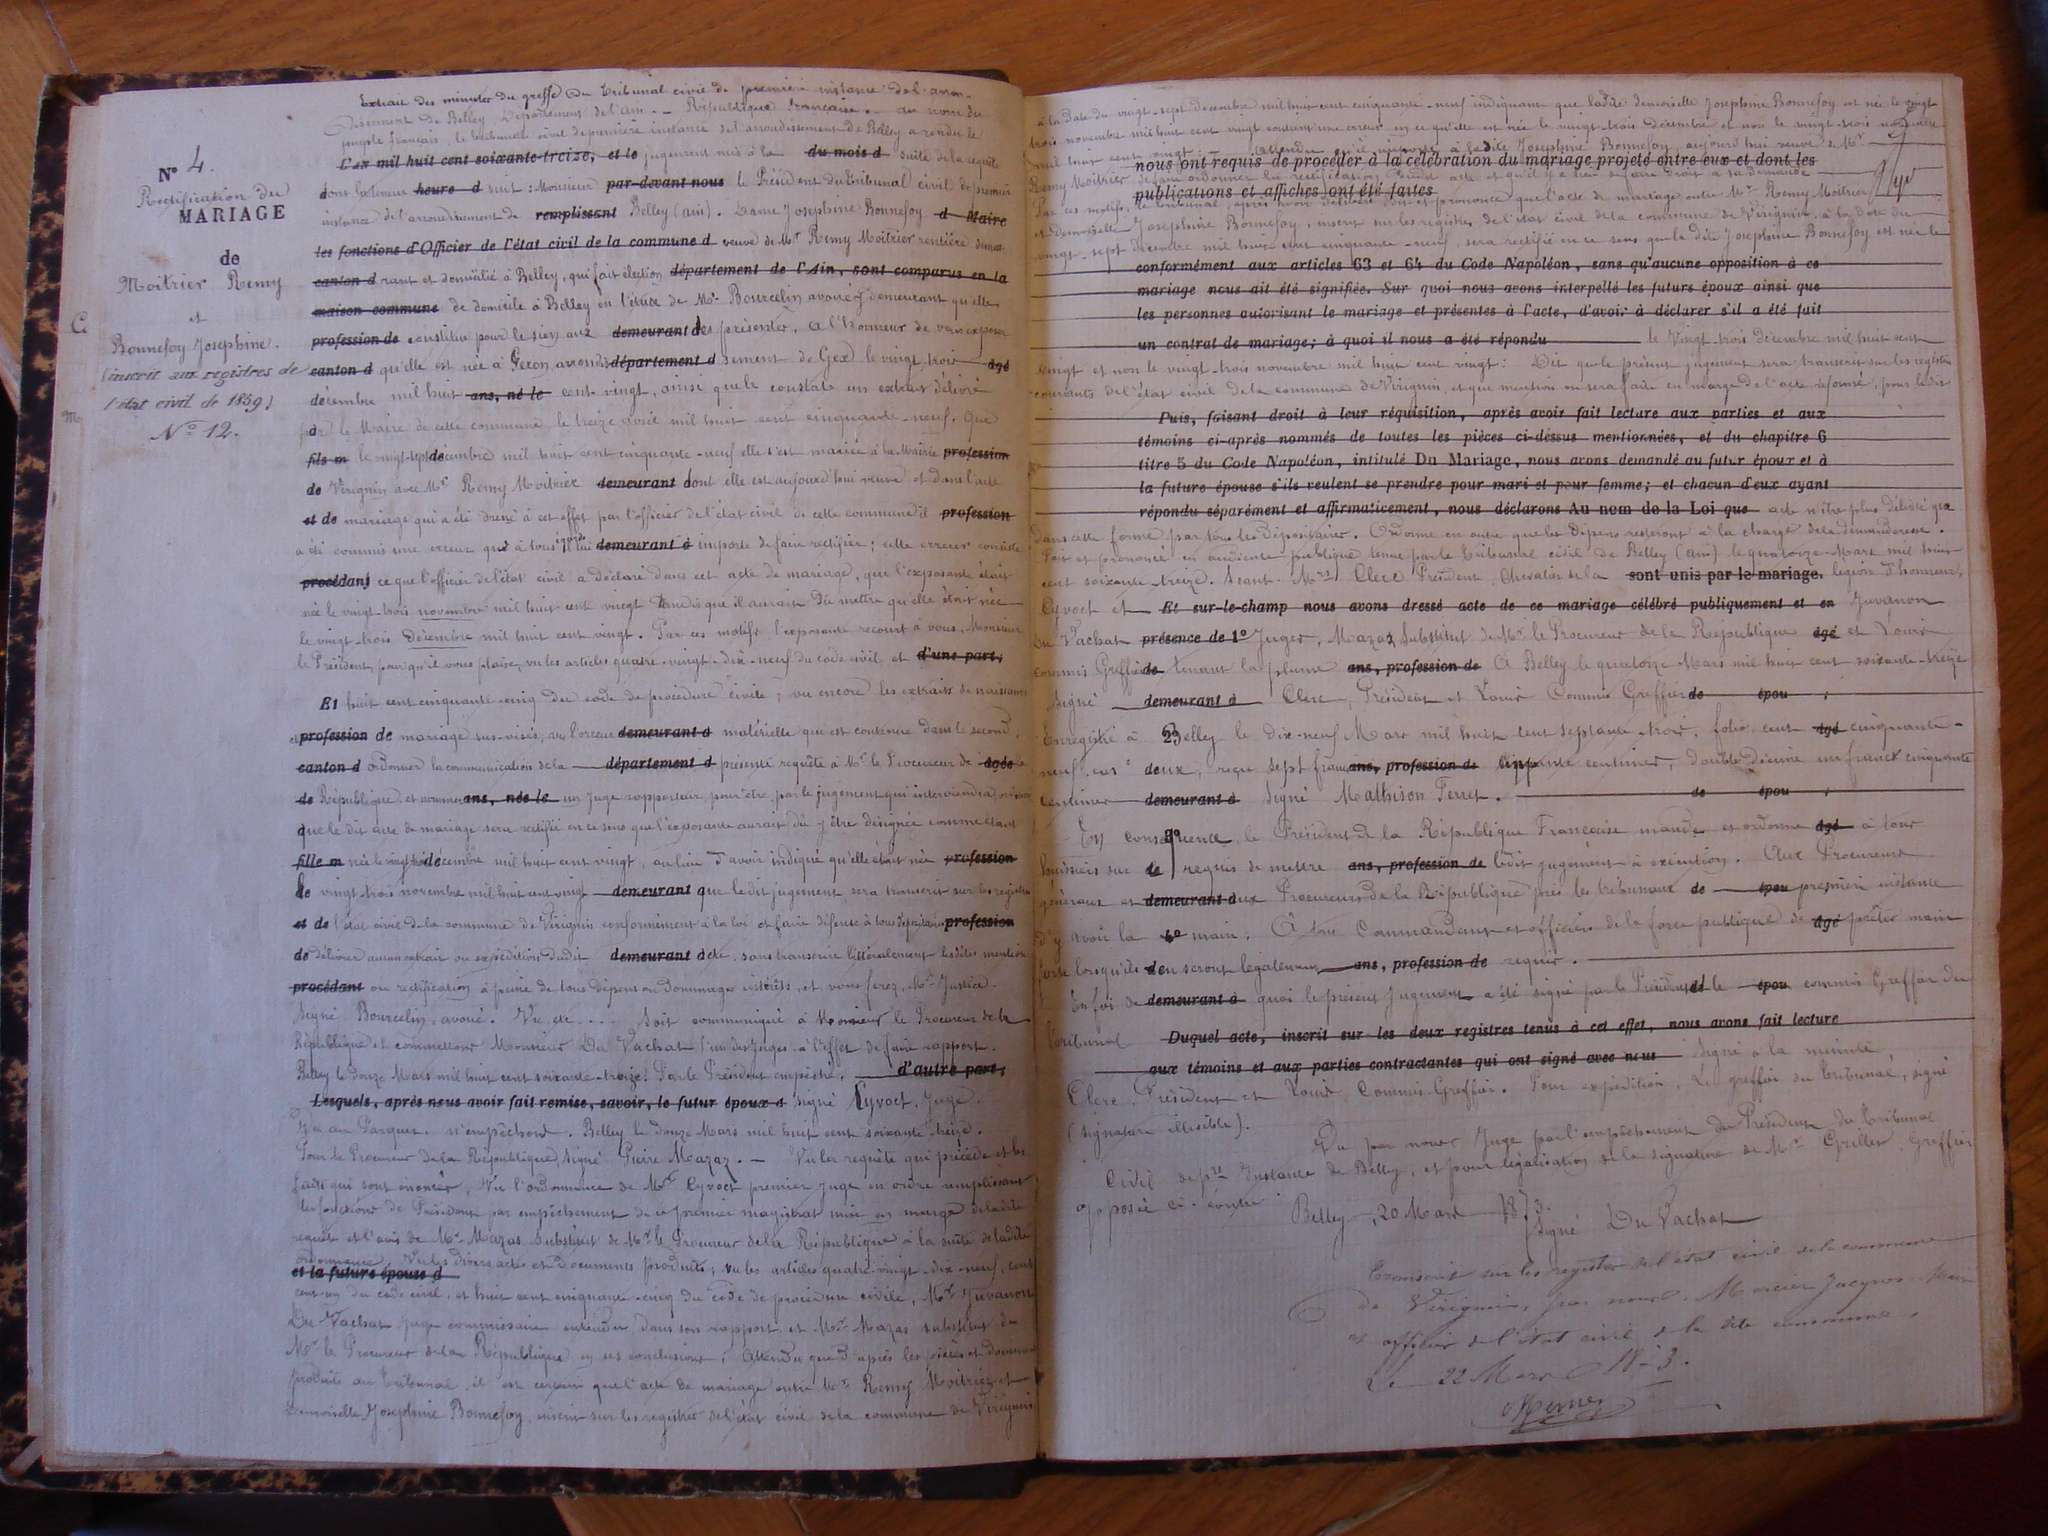 Extrait des minutes du greffe du Tribunal civil de première instance de l'arron-
dissement de Belley Département de l'ain. - République française. - au nom du
peuple français, le tribunal civil de première instance de l'arrondissement de Belley a rendu le
N° 4.
Rectification du
MARIAGE
de
Moitrier Remy
et
Bonnefoy Josephine.
(inscrit aux registres de
l'état civil de 1859)
N° 12.
C.
M
L'an mil huit cent soixante-treize, et le jugement mis à la du mois d suite de la requête
dont la teneur heure d suit : Monsieur par-devant nous le Président du tribunal civil de première
instance de l'arrondissement de remplissant Belley (ain). Dame Josephine Bonnefoy d Maire
les fonctions d'Officier de l'état civil de la commune d veuve de Mr Remy Moitrier rentière demeu
canton d rant et domicilié à Belley, qui fait élection département de l'Ain, sont comparus en la
maison commune de domicile à Belley en l'étude de Me Bourcelin avoué y demeurant qu'elle
profession de constitue pour le sien aux demeurant des présentes, a l'honneur de vous exposer
canton d qu'elle est née à arrondis département d sement de Gex le vingt trois âgé
décembre mil huit ans, né le cent vingt, ainsi que le constate un extrait délivré
par le Maire de cette commune, le treize avril mil huit cent cinquante-neuf. Que
fils m le vingt-sept décembre mil huit cent cinquante-neuf elle s'est mariée à la Mairie profession
de Virignin avec Mr Remy Moitrier demeurant dont elle est aujourd'hui veuve et dans l'acte
et de mariage qui a été dressé à cet effet par l'officier de l'état civil de cette commune il profession
a été commis une erreur que à tous demeurant à importe de faire rectifier ; cette erreur consiste
procédant ce que l'officier de l'état civil a déclaré dans cet acte de mariage, que l'exposante était
née le vingt-trois novembre mil huit cent vingt tandis que il aurait dû mettre qu'elle était née
le vingt-trois décembre mil huit cent vingt. Par ces motifs l'exposante recourt à vous, Monsieur
le Président, pour qu'il vous plaise, vu les articles quatre-vingt-dix-neuf du code civil et d'une part;
Et huit cent cinquante-cinq du code de procédure civile, vu encore les extraits de naissance
et profession de mariage sus-visés, vu l'erreur demeurant d matérielle que est contenue dans le second,
canton d ordonner la communication de la département d présente requête à Mr le Procureur de âgée la
de République et commer ans, née le un Juge rapporteur, pour être, par le jugement qui interviendra,
que le dit acte de mariage sera rectifié en ce sens que l'exposante aurait dû y être désignée comme étant
fille m née le vingt trois décembre mil huit cent vingt, au lieu d'avoir indiqué qu'elle était née profession
le vingt-trois novembre mil huit cent vingt demeurant que le dit jugement sera transcrit sur les registres
et de l'état civil de la commune de Virignin conformément à la loi et faire défense à tous dépositaires profession
de délivrer aucun extrait ou expédition dudit demeurant acte, sans transcrire littéralement les dites mention
procédant ou rectification à peine de tous dépens ou dommages intérêts, et vous ferez, Mr Justice.
Signé Bourcelin, avoué. Vu, etc ... Soit communiqué à Monsieur le Procureur de la
République et commettons Monsieur Du Vachat l'un des Juges à l'effet de faire rapport.
Belley le douze Mars mil huit cent soixante-treize. Par le Président empêché, d'autre part;
Lesquels, après nous avoir fait remise, savoir, le futur époux d signé Cyvoct, Juge.
Vu au Parquet, n'empêchons. Belley le douze Mars mil huit cent soixante treize.
Pour le Procureur de la République, signé Pierre Mazaz. - Vu la requête qui précède et les
faits qui sont énoncés, Vu l'ordonnance de Mr Cyvoct premier Juge en ordre remplissant
les fonctions de Président par empêchement de ce premier magistrat mise en marge de la dite
requête et l'avis de Mr Mazas Substitut de Mr le Procureur de la République à la suite de la dite
ordonnance. Vu les divers actes et documents produits, vu les articles quatre-vingt-dix-neuf, cent
et la future épouse d
cent un du code civil, et huit cent cinquante-cinq du code de procédure civile, Mr Juvanon
Du Vachat Juge commissaire entendu dans son rapport et Mr Mazas substitut de
Mr le Procureur de la République en ses conclusions ; Attendu que d'après les pièces et documents
produits au tribunal, il est certain que l'acte de mariage entre Mr Remy Moitrier et
demoiselle Josephine Bonnefoy, inscrit sur les registres de l'état civil de la commune de Virignin
à la date du vingt-sept décembre mil huit cent cinquante-neuf indiquant que la dite demoiselle Josephine Bonnefoy est née le vingt
trois novembre mil huit cent vingt contient une erreur en ce qu'elle est née le vingt-trois décembre et non le vingt-trois novembre
mil huit cent vingt ; Attendu qu'il importe à la dite Josephine Bonnefoy, aujourd'hui veuve de Mr
nous ont requis de procéder à la célébration du mariage projeté entre eux et dont les
Remy Moitrier de faire ordonner la rectification dudit acte et qu'il y a lieu de faire droit à sa demande
publications et affiches ont été faites
Par ces motifs, le tribunal, après avoir délibéré dit et prononce que l'acte de mariage entre Mr Remy Moitrier
et demoiselle Josephine Bonnefoy, inscrit sur les registres de l'état civil de la commune de Virignin, à la date du
vingt-sept décembre mil huit cent cinquante-neuf, sera rectifié en ce sens que la dite Josephine Bonnefoy est née le
conformément aux articles 63 et 64 du Code Napoléon, sans qu'aucune opposition à ce
mariage nous ait été signifiée. Sur quoi nous avons interpellé les futurs époux ainsi que
les personnes autorisant le mariage et présentes à l'acte, d'avoir à déclarer s'il a été fait
un contrat de mariage; à quoi il nous a été répondu le Vingt-trois décembre mil huit cent
vingt et non le vingt-trois novembre mil huit cent vingt : Dit que le présent jugement sera transcrit sur les registres
courants de l'état civil de la commune de Virignin, et que mention en sera faite en marge de l'acte réformé, pour le dit
Puis, faisant droit à leur réquisition, après avoir fait lecture aux parties et aux
témoins ci-après nommés de toutes les pièces ci-dessus mentionnées, et du chapitre 6
titre 5 du Code Napoléon, intitulé Du Mariage, nous avons demandé au futur époux et à
la future épouse s'ils veulent se prendre pour mari et pour femme; et chacun d'eux ayant
répondu séparément et affirmativement, nous déclarons Au nom de la Loi que acte n'être plus délivré que
dans cette forme par tous les dépositaires. Ordonne en outre que les dépens resteront à la charge de la demanderesse.
Fait et prononcé en audience publique tenue par le tribunal civil de Belley (ain) le quatorze Mars mil huit
cent soixante treize. Séant Mrs Clerc Président, Chevalier de la sont unis par le mariage. légion d'honneur,
Cyvoct et Et sur-le-champ nous avons dressé acte de ce mariage célébré publiquement et en Juvanon
Du Vachat présence de 1° Juges, Mazaz Substitut de Mr le Procureur de la République âgé et Louis
commis Greffier de tenant la plume ans, profession de A Belley le quatorze Mars mil huit cent soixante-treize
Signé demeurant à Clerc, Président et Louis Commis Greffier de épou ;
Enregistré à 2° Belley le dix-neuf Mars mil huit cent septante-trois, folio cent âgé cinquante-
neuf, case deux, reçu sept francs ans, profession de cinquante centimes, double décime un franc cinquante
centimes demeurant à signé Mathison Ferret. de épou ;
En conséquence, 3° le Président de la République Française mande et ordonne âgé à tous
huissiers sur de requis de mettre ans, profession de ledit jugement à exécution. Aux Procureurs
généraux et demeurant à aux Procureurs de la République près les tribunaux de épou première instance
d'y avoir la 4° main. A tous Commandants et officiers de la force publique de âgé prêter main
forte lorsqu'ils de en seront légalement ans, profession de requis.
En foi de demeurant à quoi le présent Jugement a été signé par le Président et le épou commis Greffier du
tribunal Duquel acte, inscrit sur les deux registres tenus à cet effet, nous avons fait lecture
aux témoins et aux parties contractantes qui ont signé avec nous Signé à la minute,
Clerc, Président et Louis, Commis Greffier. Pour expédition, Le greffier du Tribunal, signé
(signature illisible).
Vu par nous Juge par l'empêchement du Président du Tribunal
Civil de pre Instance de Belley, et pour légalisation de la signature de Mr Grillet Greffier
apposée ci-contre
Belley, 20 Mars 1873.
Signé Du Vachat
Transcrit sur les registres de l'état civil de la commune
de Virignin, par nous, Mercier Jacques Maire
et officier de l'état civil de la dite commune,
Le 22 Mars 1873.